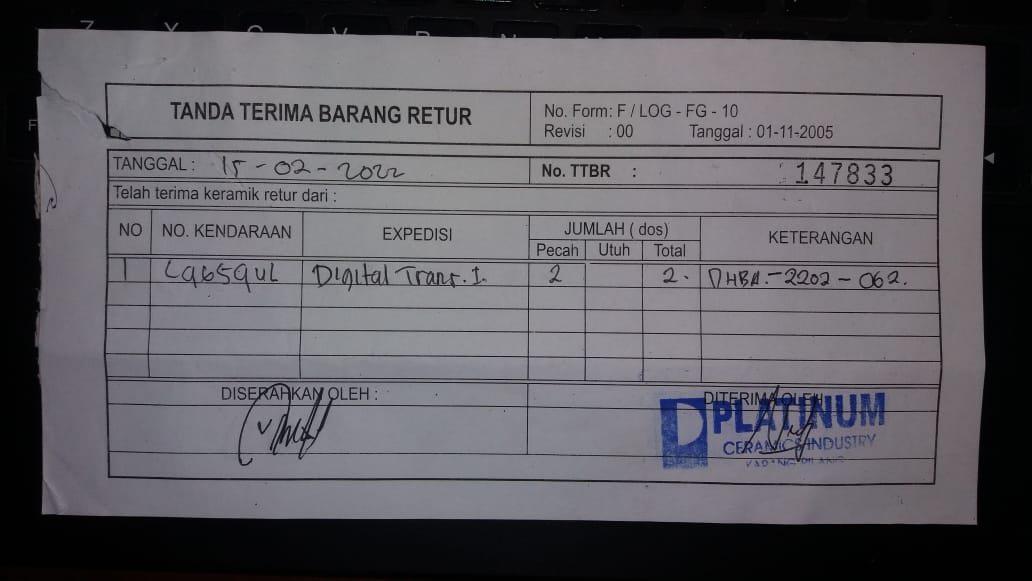 TANDA TERIMA BARANG RETUR
No. Form: F / LOG - FG - 10
Revisi : 00 Tanggal : 01-11-2005
TANGGAL : 15-02-2022
No. TTBR : 147833
Telah terima keramik retur dari :
NO NO. KENDARAAN EXPEDISI JUMLAH ( dos) KETERANGAN
Pecah Utuh Total
1 L9659UL Digital Trans. I. 2 2. DHBA.-2202-062.
DISERAHKAN OLEH : DITERIMA OLEH
PLATINUM
CERAMICS INDUSTRY
KARANG PILANG